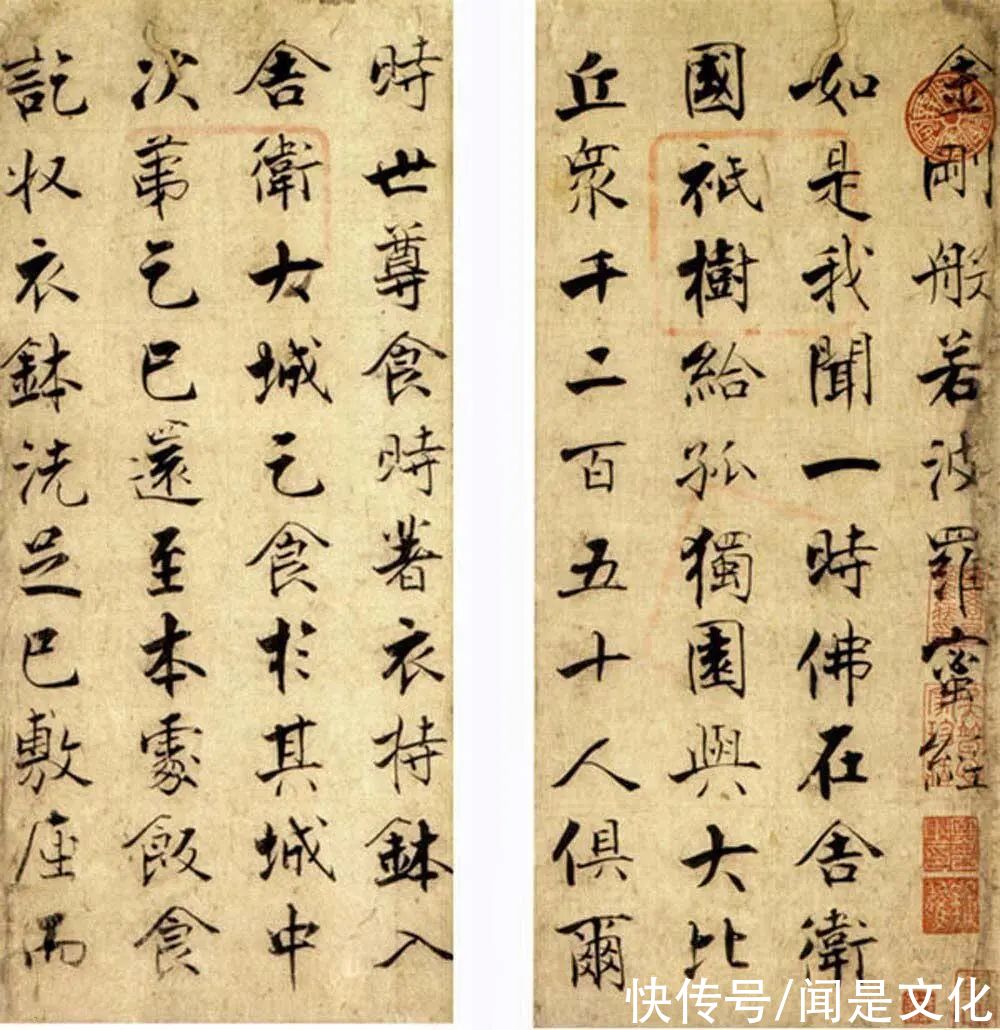 金剛般若波羅蜜經
如是我聞一時佛在舍衛
國祇樹給孤獨園與大比
丘衆千二百五十人俱爾
時世尊食時著衣持鉢入
舍衛大城乞食於其城中
次第乞已還至本處飯食
訖收衣鉢洗足已敷座而
快传号/闻是文化